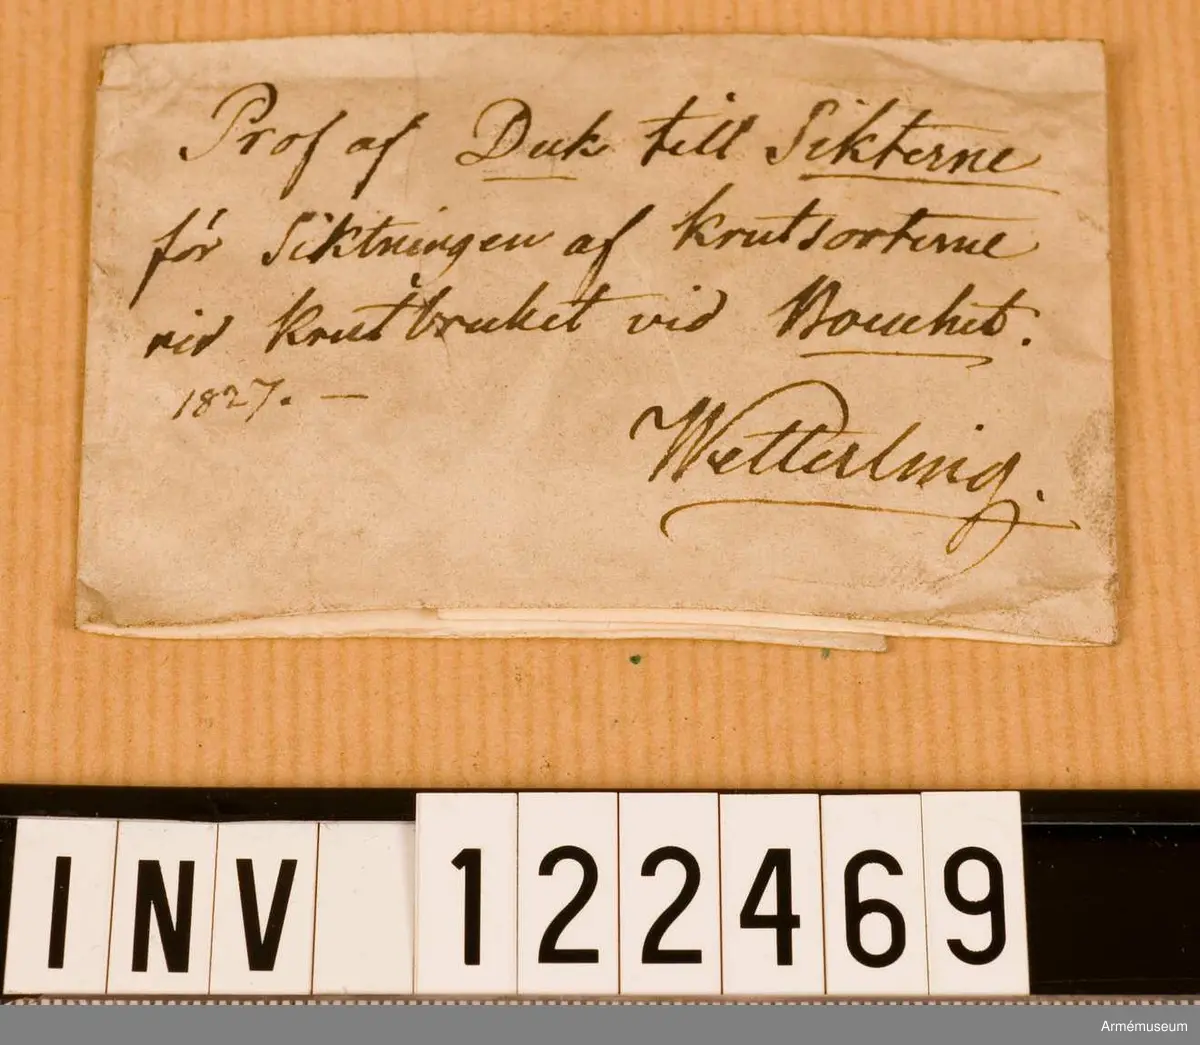 Prof af Duk till Sikterne
för Siktningen af krutsorterne
vid Krutbruket vid Bouchet.
1827. —
Wetterling.
INV 122469
Armémuseum